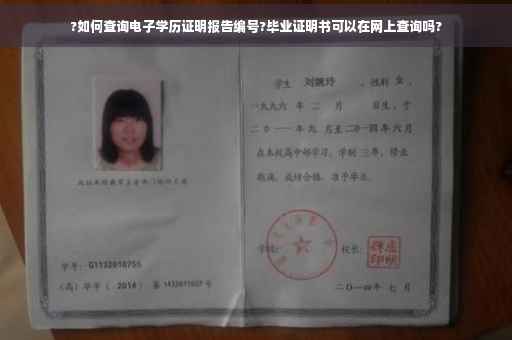 ?如何查询电子学历证明报告编号?毕业证明书可以在网上查询吗?
学生 刘婉玲 ,性别 女 ,
一九九六 年 二 月 日生,于
二〇一一年九 月至二〇一四年六月
在本校高中部学习,学制 三年,修业
期满,成绩合格,准予毕业。
学号: G1132010755
(高)毕字( 2014 )第 1432011027 号
学校: 校长:
二〇一四年 七 月